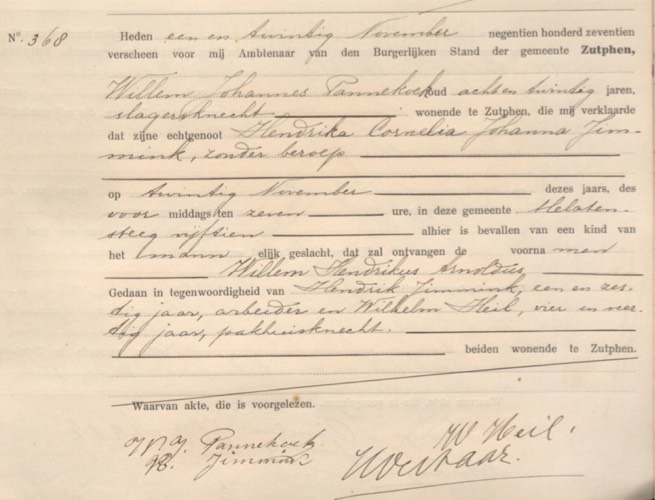 N°. 368
Heden een en twintig November negentien honderd zeventien
verscheen voor mij Ambtenaar van den Burgerlijken Stand der gemeente Zutphen,
Willem Johannes Pannekoek oud acht en twintig jaren,
slagersknecht wonende te Zutphen, die mij verklaarde
dat zijne echtgenoot Hendrika Cornelia Johanna Jim-
mink, zonder beroep
op twintig November dezes jaars, des
voor middags ten zeven ure, in deze gemeente
steeg vijftien alhier is bevallen van een kind van
het mann elijk geslacht, dat zal ontvangen de voorna men
Willem Hendrikus Arnoldus
Gedaan in tegenwoordigheid van Hendrik Jimmink, een en zes-
tig jaar, arbeider en Wilhelm Heil, vier en veer-
tig jaar, pakhuisknecht.
beiden wonende te Zutphen.
Waarvan akte, die is voorgelezen.
W J Pannekoek
W Heil.
H. Jimmink